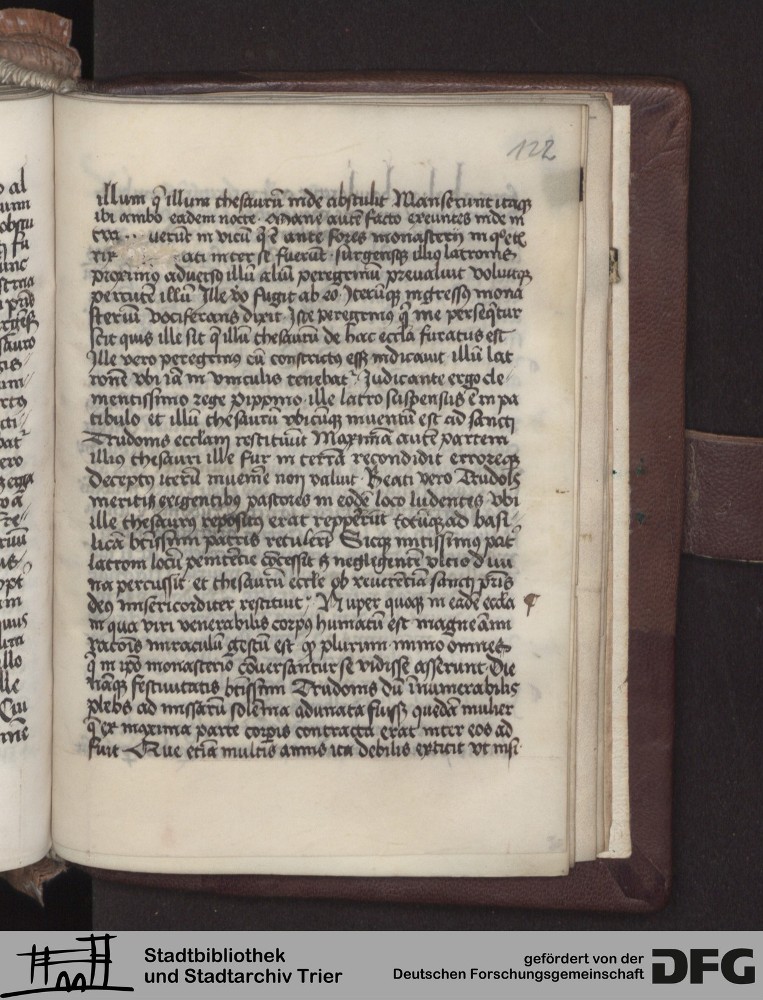 122
illum q̄ illum thesaurū inde abstulit Manserunt itaqꝫ
ibi ambo eadem nocte. Mane autē facto exeuntes inde in
uerūt in vicū q̄ ē ante fores monasterij in q°
ati inter se fuerūt. surgensqꝫ illiꝰ latronis
proximꝰ aduerso illū aliū peregrinū preualuit voluitqꝫ
percutē illū Ille v̄o fugit ab eo. Iterūqꝫ ingressꝰ mona
sterium vociferans dixit. Iste peregrinꝰ q̄ me perseqͥtur
scit quis ille sit q̄ illū thesaurū de hac eccl̄a furatus est
Ille vero peregrinꝰ cū constrictꝰ eēꝫ indicauit illū lat
ronē vbi iā in vinculis tenebat᷑. Iudicante ergo cle
mentissimo rege pippino. ille latro suspensus ē in pa
tibulo et illū thesaurū vbicūqꝫ inuentū est ad sancti
Trudonis ecclesiam restituit Maximā autē partem
illiꝰ thesauri ille fur in terrā recondidit erroreqꝫ
deceptꝰ iterū inuenire non valuit. Beati vero Trudoīs
meritis exigentibꝰ pastores in eodē loco ludentes vbi
ille thesaurꝰ repositꝰ erat repperūt totūqꝫ ad basi
licā btīssimi patris retulerūt Sicqꝫ mitissimꝰ pat᷑
latroni locū penitētie cōcessit ꝫ neglegentē vltio diui
na percussit. et thesaurū eccl̄e ob reuerētiā sancti p̄ris
deꝰ misericorditer restituit. Nuper quoqꝫ in eadē eccl̄a
in qua viri venerabilis corpꝰ humatū est magne āmi
ratōis miraculū gestū est qꝫ plurimi. immo omnes
q̄ in ip̄o monasterio cōuersantur se vidisse asserunt. Die
nāqꝫ festiuitatis btīssimi Trudonis dū innumerabilis
plebs ad missarū solēnia adunata fuisꝫ quedā mulier
q̄ ex maxima parte corpīs contracta erat inter eos ad
fuit Que etiā multis annis ita debilis extitit vt nisi
Stadtbibliothek
und Stadtarchiv Trier
gefördert von der
Deutschen Forschungsgemeinschaft
DFG